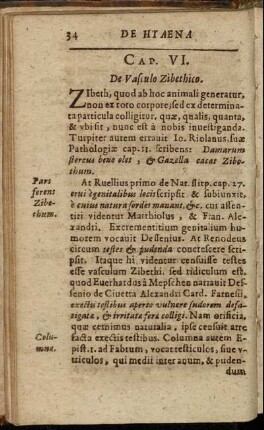 34 DE HYAENA
CAP. VI.
De Vasculo Zibethico.
ZIbeth, quod ab hoc animali generatur,
non ex toto corpore, sed ex determina-
ta particula colligitur. quæ, qualis, quanta,
& vbi sit, nunc est à nobis inuestiganda.
Turpiter autem errauit Io. Riolanus, suæ
Pathologiæ cap. 11. scribens: Damarum
stercus bene olet, & Gazella cacat Zibe-
thum.
Pars
ferens
Zibe-
thum.
At Ruellius primo de Nat. stirp. cap. 27.
erui è genitalibus locis scripsit & subiunxit,
è cuius natura sordes manant, &c. cui assen-
tiri videntur Matthiolus, & Fran. Ale-
xandri. Excrementitium genitalium hu-
morem vocauit Dessenius. At Renodeus
circum testes & pudenda concrescere scri-
psit. Itaque hi videntur censuisse testes
esse vasculum Zibethi. sed ridiculum est,
quod Euerhardus à Mepschen narrauit Des-
senio de Ciuetta Alexandri Card. Farnesii,
exectis testibus aperto vulnere sudorem defa-
tigatæ, & irritatæ feræ colligi. Nam orificia,
quæ cernimus naturalia, ipse censuit arte
facta exectis testibus. Columna autem E-
Colu-
mna.
pist. 1. ad Fabrum, vocat testiculos, siue v-
triculos, qui medii inter anum, & puden-
dum